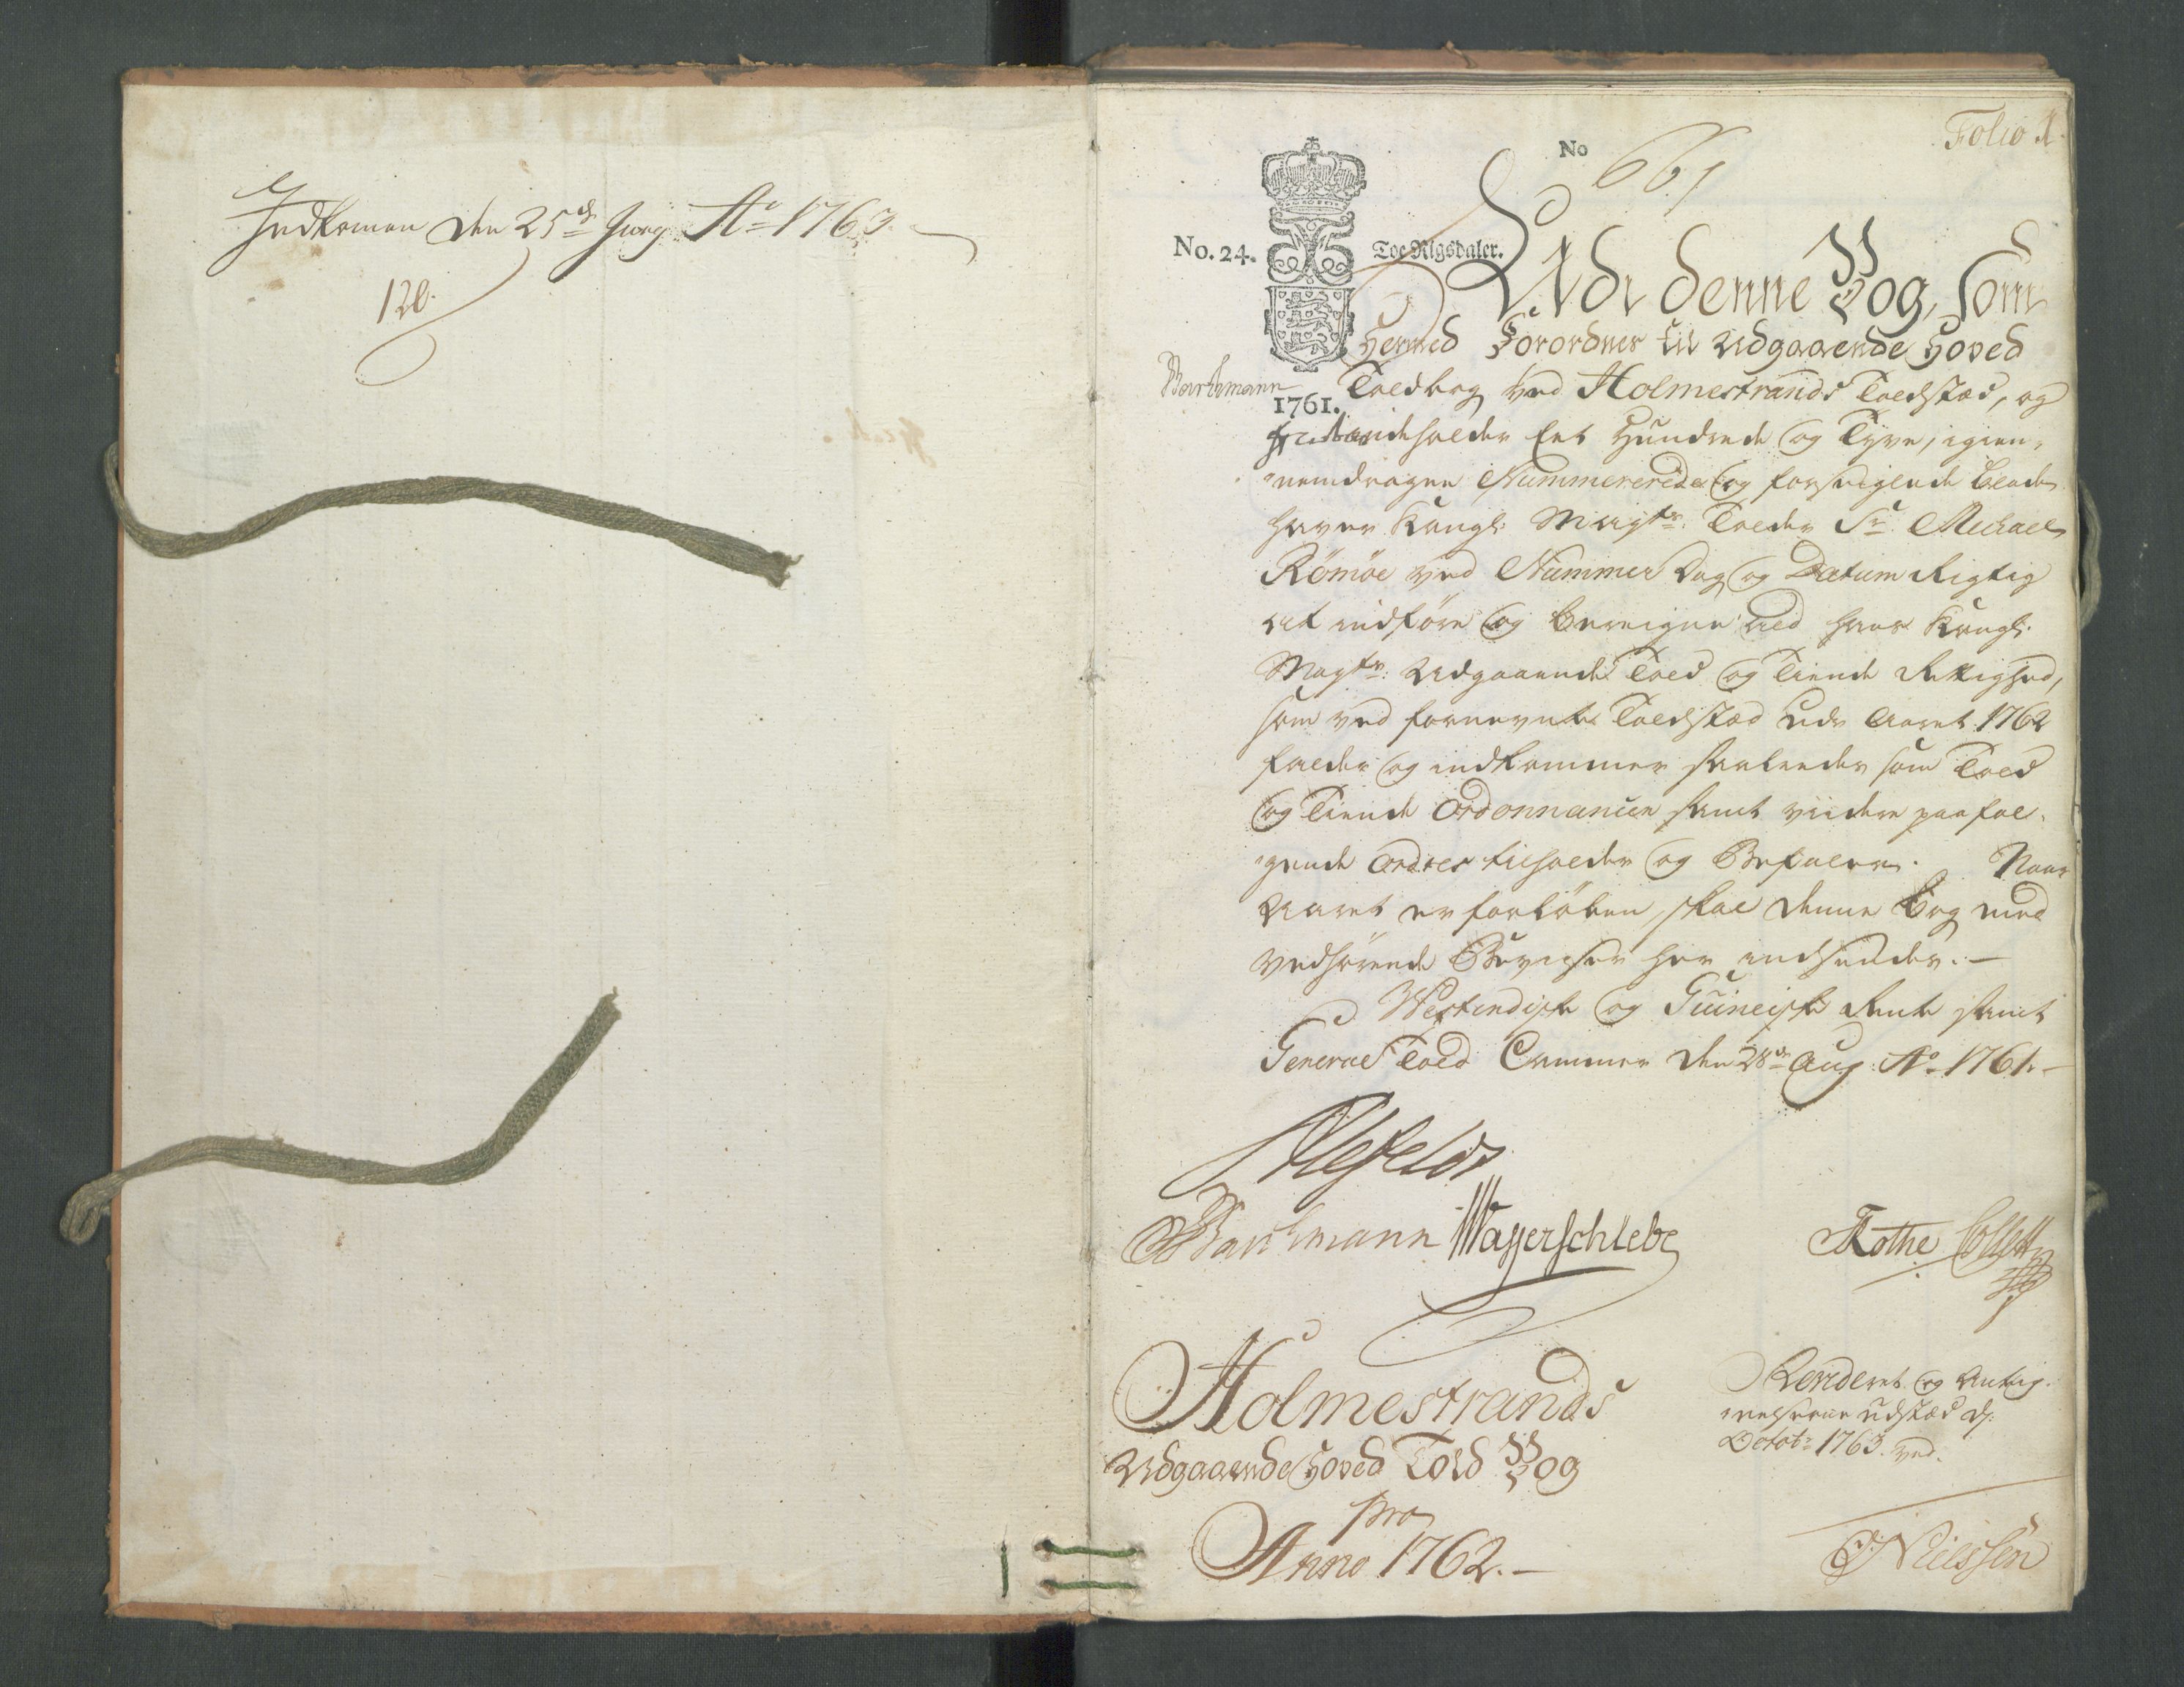 Indkomen den 25de Juny Ao 1763
120.
Folio 1.
No 661
No. 24.
Toe Rigsdaler.
Udi denne Bog, som
Hermed Forordnes til Udgaaende Hoved
Barthmann
1761.
Toldbog ved Holmestrands Toldstæd, og
indeholder Eet Hundrede og Tyve, igien-
nemdragne Nummererede og forseiglede blade
haver Kongl: Mayts: Tolder Sr. Michael
Römöe ved Nummer Dag og Datum Rigtig
at indføre og beregne ald hans Kongl:
Mayts: Udgaaende Told og Tiende Rettighed,
som ved fornevnte Toldstæd udi Aaret 1762
falder og indkommer saaleedes som Told
og Tiende Ordonnancen samt viidere paaføl-
gende Ordres tilholder og Befaler. Naar
Aaret er forløben, skal denne Bog med
vedhørende Beviiser her indsendes.
Westindiske og Guineiske Rente samt
General Told Cammer den 28de Aug: Ao 1761.
Ahlefeldt
Barthmann Wasserschlebe
Rothe Collett
Holmestrands
Udgaaende Hoved Told Bog
pro
Anno 1762.
Revideret og Anteg-
nelserne udstæd d:
Octobr 1763. ved.
Nielssen